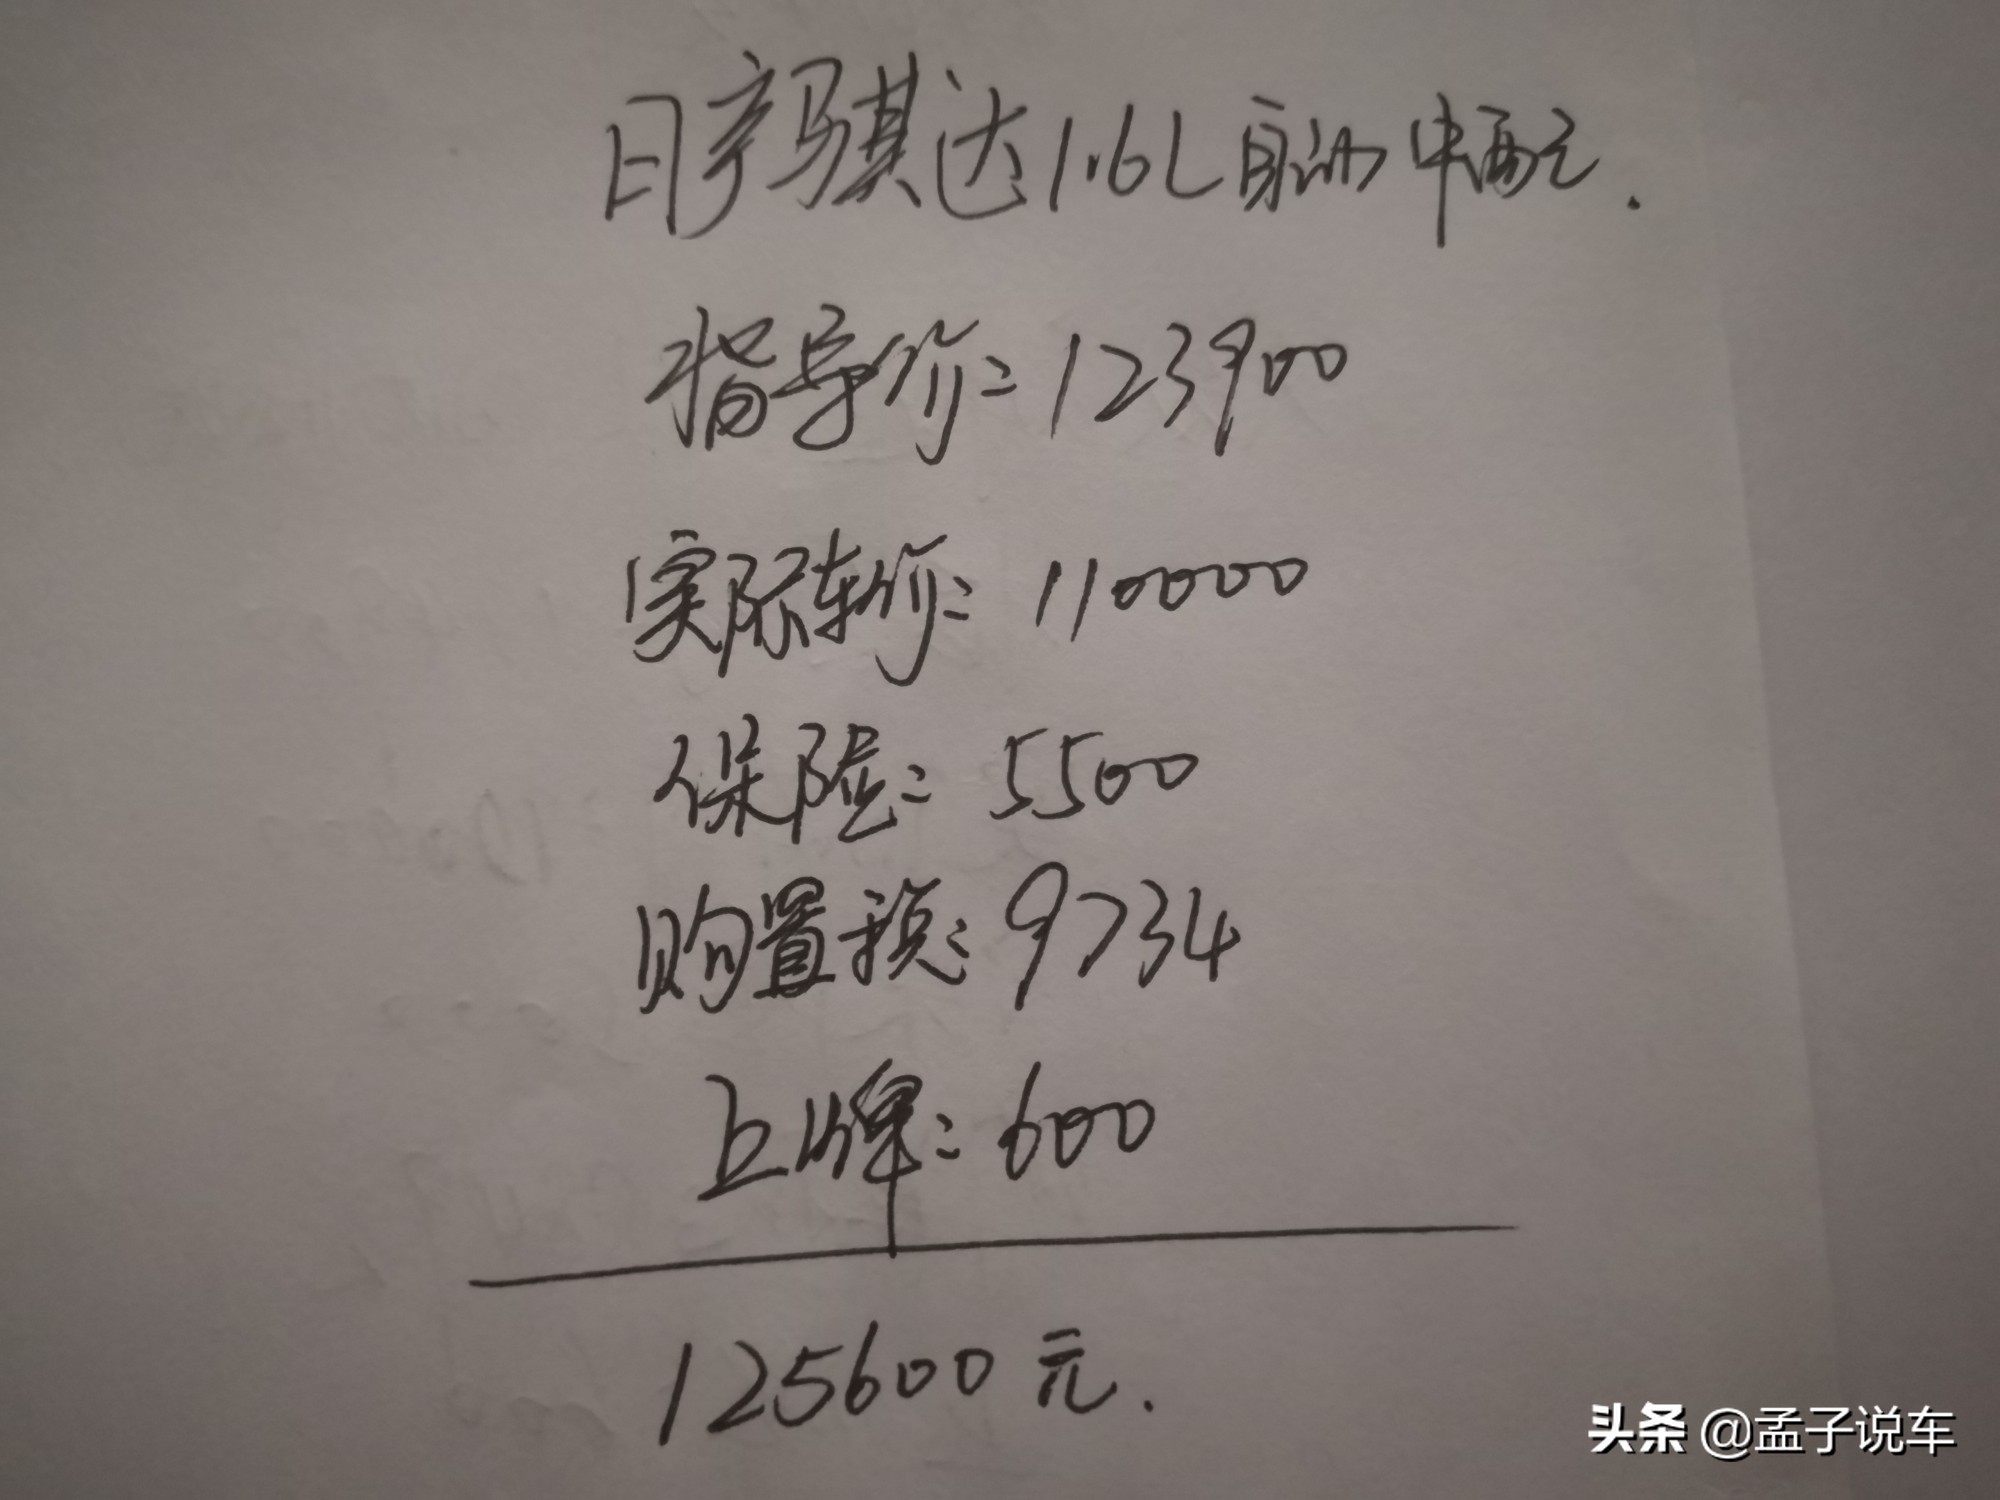 日产骐达1.6L自动中配.
指导价:123900
实际车价:110000
保险:5500
购置税:9734
上牌:600
125600元.
头条 @孟子说车